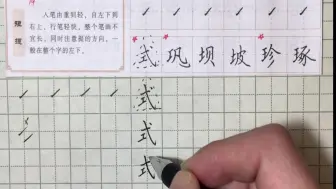 提
入笔由重到轻，自左下到
右上，行笔轻快，整个笔画不
宜长，同时注意提的方向，一
般在整个字的左下。
式 巩 坝 坡 珍 琢
式
式
式